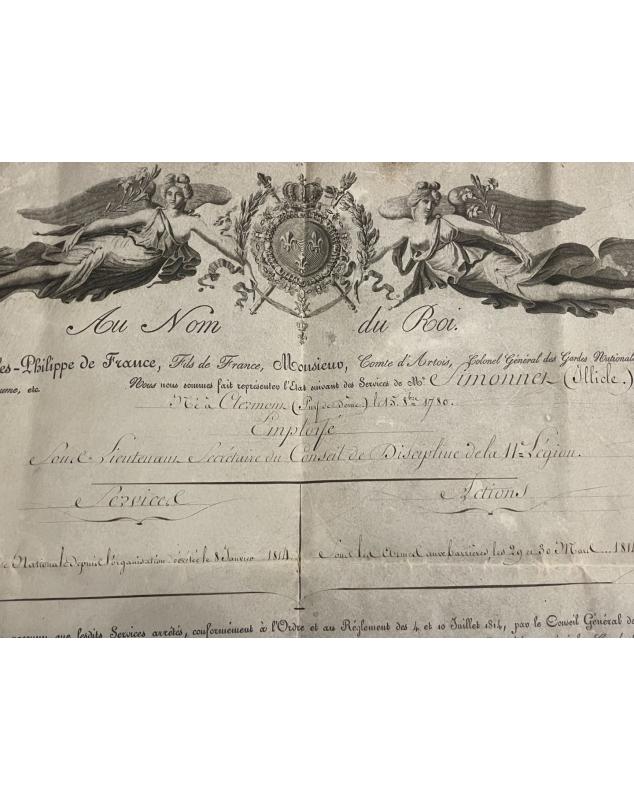 Au Nom du Roi.
les-Philippe de France, Fils de France, Monsieur, Comte d'Artois, Colonel Général des Gardes Nationale
aume, etc. Nous nous sommes fait représenter l'Etat suivant des Services de Mr. Simonnet (Illide.)
Né à Clermont (Puy de Dôme.) le 15. 8bre 1780.
Employé
Sous-Lieutenant Secrétaire du Conseil de Discipline de la 11e Légion.
Services Actions
e Nationale depuis l'organisation décrétée le 8 Janvier 1814
Sous les Armes aux barrières, les 29 et 30 Mars ... 1814
que lesdits Services arrêtés, conformément à l'Ordre et au Réglement des 4 et 10 Juillet 1814, par le Conseil Général de